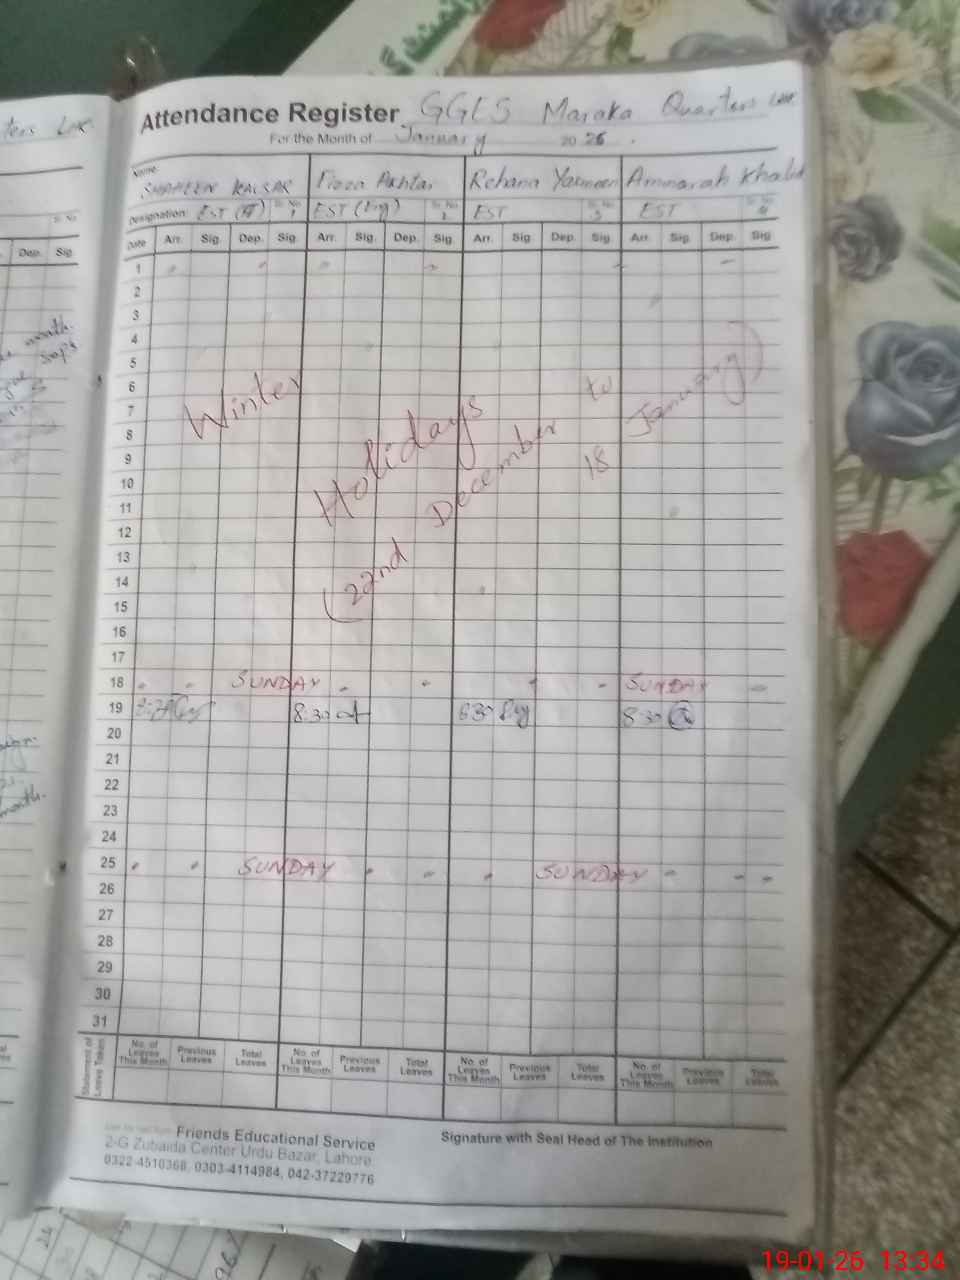 Attendance Register GGES Maraka Quarters LHR
For the Month of January 2026.
Name: SHAHEEN KAUSAR Fizza Akhtar Rehana Yasmeen Ammarah Khalid
Designation: EST Sr. No. 1 EST (Eng) Sr. No. 2 EST Sr. No. 3 EST Sr. No. 4
Date Arr. Sig. Dep. Sig. Arr. Sig. Dep. Sig. Arr. Sig. Dep. Sig. Arr. Sig. Dep. Sig.
1
2
3
4
5
6
7
8
9
10
11
12
13
14
15
16
17
Winter
Holidays
(22nd December to
18 January)
18 SUNDAY SUNDAY
19 8:30 8:30 8:30
20
21
22
23
24
25 SUNDAY SUNDAY
26
27
28
29
30
31
Statement of Leave Taken
No. of Leaves This Month Previous Leaves Total Leaves No. of Leaves This Month Previous Leaves Total Leaves No. of Leaves This Month Previous Leaves Total Leaves No. of Leaves This Month Previous Leaves Total Leaves
Friends Educational Service
2-G Zubaida Center Urdu Bazar, Lahore
0322-4510368, 0303-4114984, 042-37229776
Signature with Seal Head of The Institution
Sr. No.
Dep. Sig.
month.
19-01-26 13:34